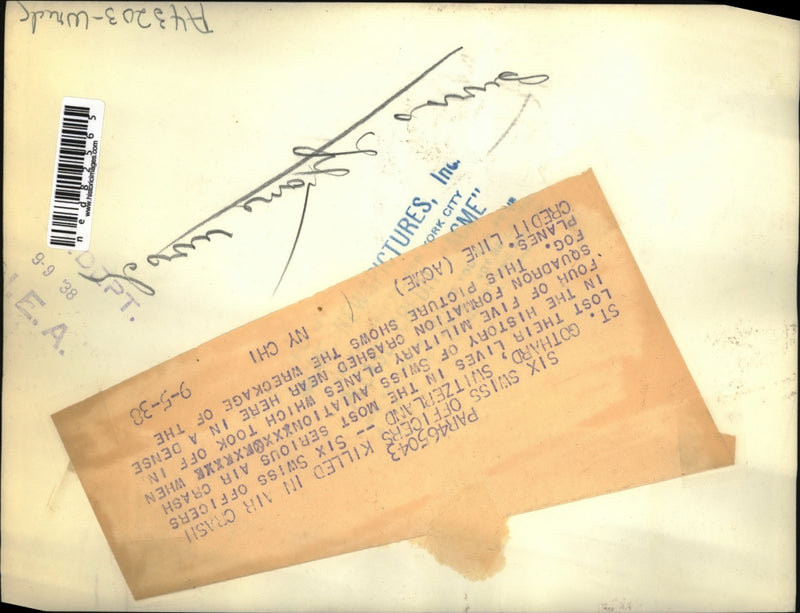 PAR465043
SIX SWISS OFFICERS KILLED IN AIR CRASH
ST. GOTHARD, SWITZERLAND -- SIX SWISS OFFICERS
LOST THEIR LIVES IN THE MOST SERIOUS AIR CRASH
IN THE HISTORY OF SWISS AVIATION WHEN
FOUR OF FIVE MILITARY PLANES WHICH TOOK OFF IN
SQUADRON FORMATION CRASHED NEAR HERE IN A DENSE
FOG. THIS PICTURE SHOWS THE WRECKAGE OF THE
PLANES.
CREDIT LINE (ACME) NY CHI 9-5-38
ICTURES, Inc.
ORK CITY
CME"
DEPT.
9-9 '38
E. A.
www.historicimages.com
ned82565